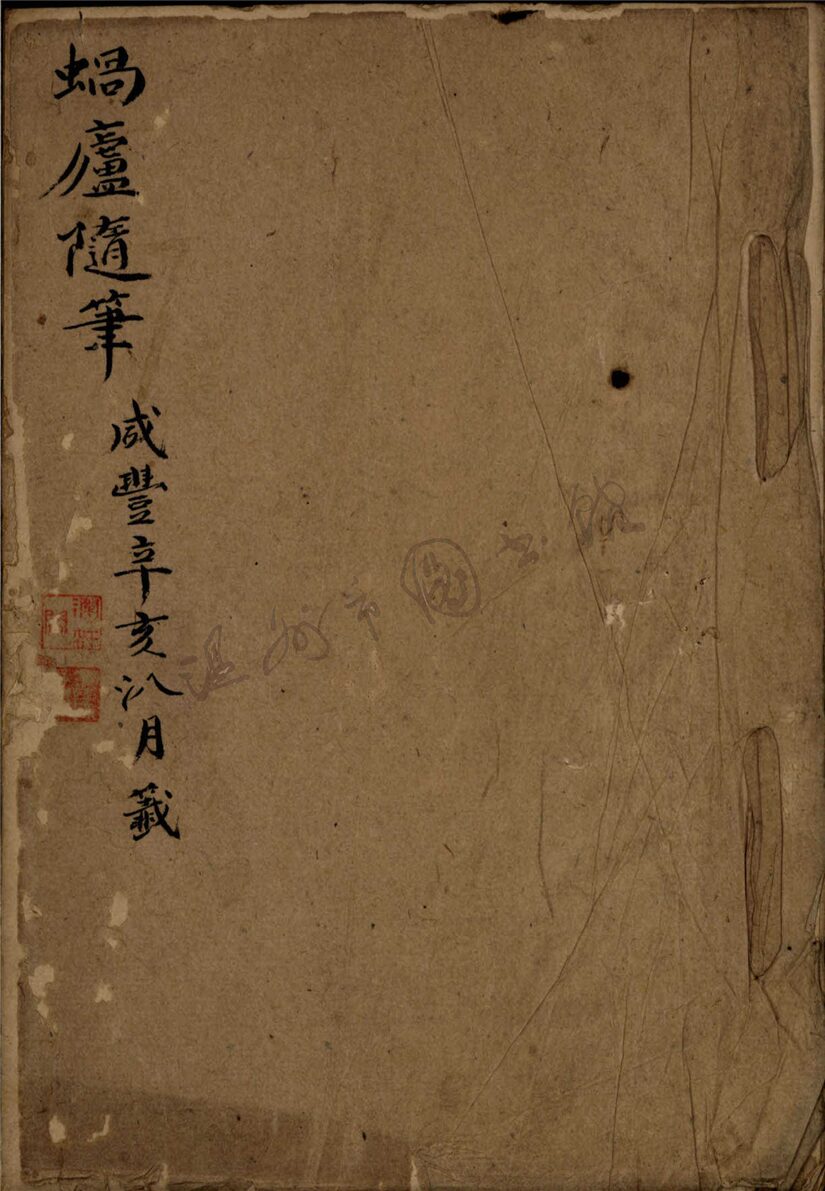 蝸廬隨筆
咸豐辛亥八月籤
温州市圖书館